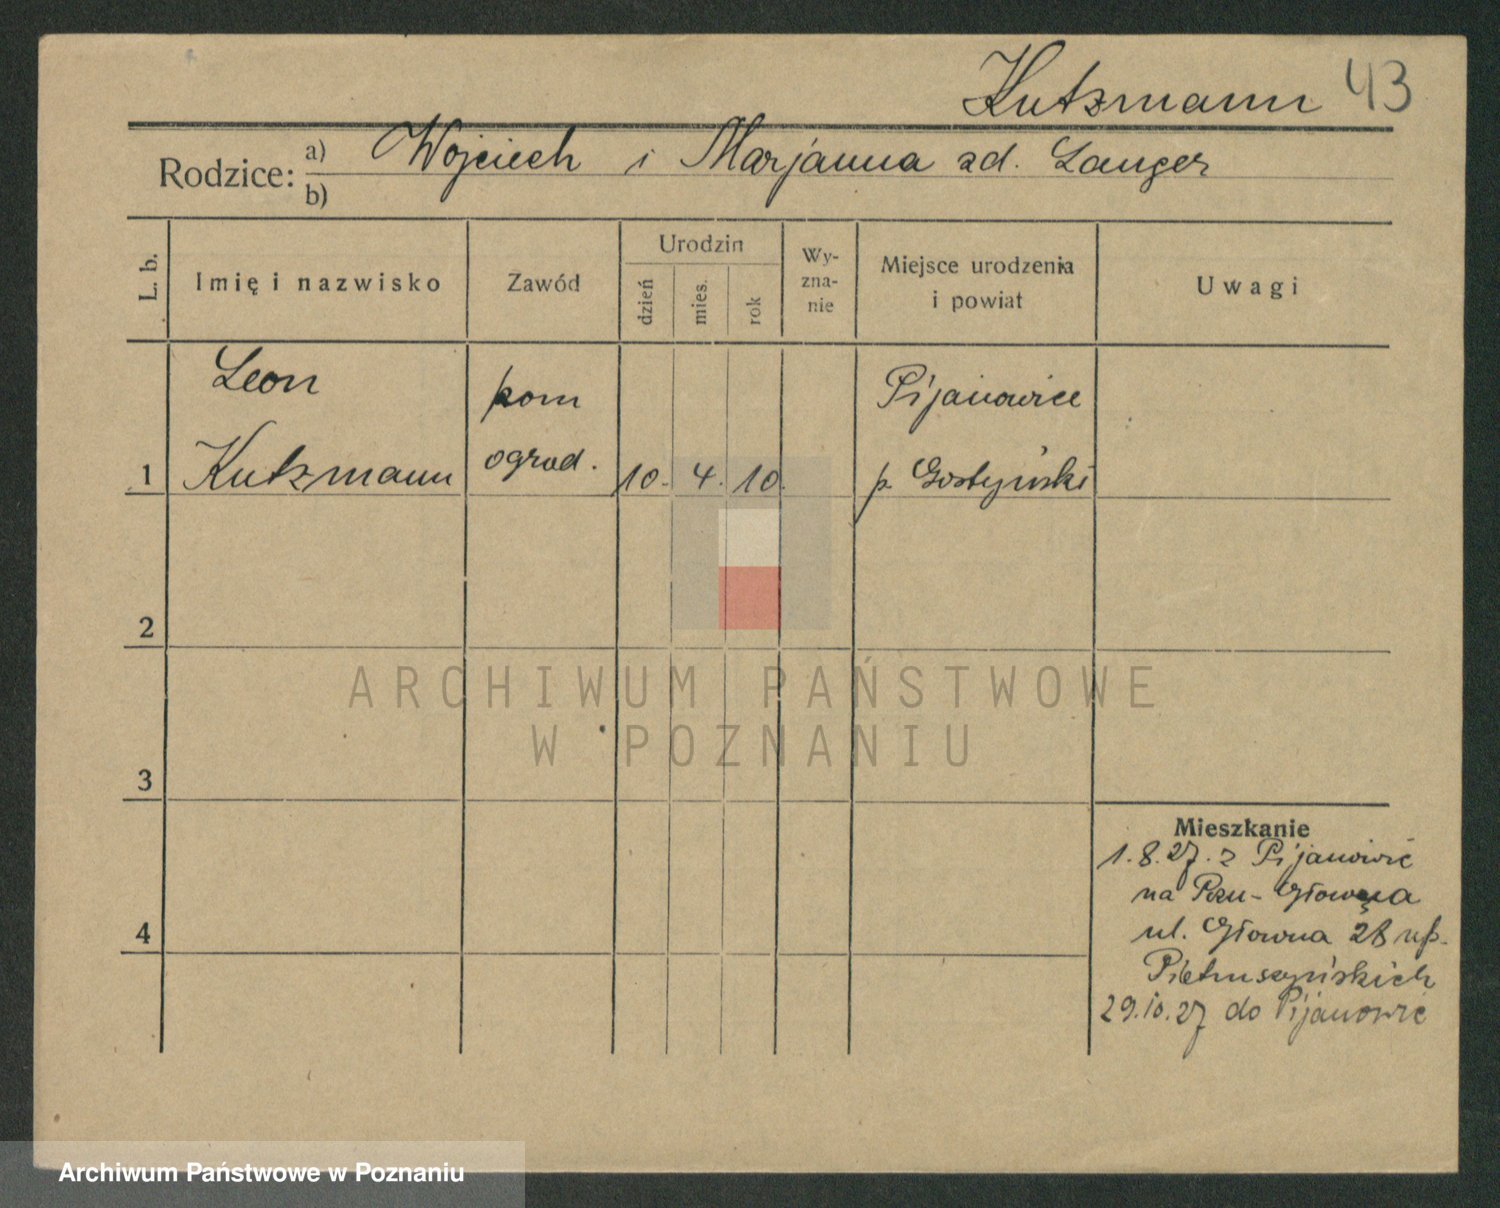 Kutzmann 43
Rodzice: a) Wojciech i Marjanna zd. Langer
b)
L. b.
Imię i nazwisko
Zawód
Urodzin
dzień
mies.
rok
Wy-
zna-
nie
Miejsce urodzenia
i powiat
Uwagi
Leon
Kutzmann
pom
ograd.
10. 4. 10.
Pijanowice
p. Gostyński
1
2
3
4
Mieszkanie
1.8.27. z Pijanowic
na Pozn-Główna
ul. Główna 28 up.
Pietruszyńskich
29.10.27 do Pijanowic
ARCHIWUM PAŃSTWOWE
W POZNANIU
Archiwum Państwowe w Poznaniu